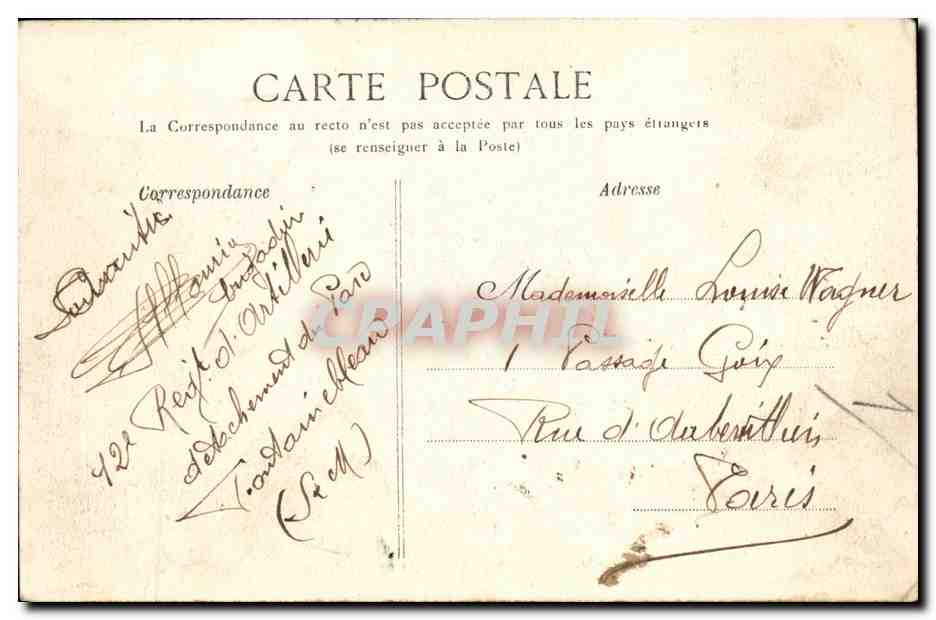 CARTE POSTALE
La Correspondance au recto n'est pas acceptée par tous les pays étrangers
(se renseigner à la Poste)
Correspondance
Adresse
42e Regt d'Artillerie
détachement du Parc
Fontainebleau
(S & M)
Mademoiselle Louise Wagner
1 Passage Goix
Rue d'Aubervilliers
Paris
CPAPHIL